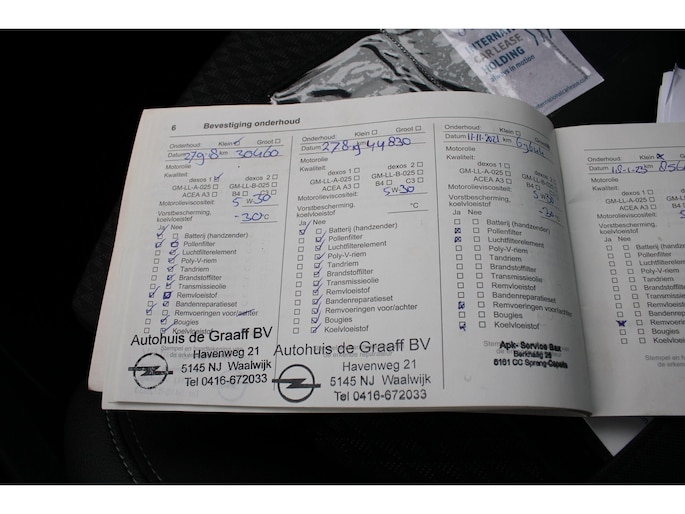 INTERNATIONAL
CAR LEASE
HOLDING
always in motion
6 Bevestiging onderhoud
Onderhoud: Klein Groot
Datum 27-9-8 km 30460
Motorolie
Kwaliteit:
dexos 1 dexos 2
GM-LL-A-025 GM-LL-B-025
ACEA A3 B4 C3
Motorolieviscositeit:
5 W 30
Vorstbescherming,
koelvloeistof
-30 °C
Ja Nee
Batterij (handzender)
Pollenfilter
Luchtfilterelement
Poly-V-riem
Tandriem
Brandstoffilter
Transmissieolie
Remvloeistof
Bandenreparatieset
Remvoeringen voor/achter
Bougies
Koelvloeistof
Autohuis de Graaff BV
Havenweg 21
5145 NJ Waalwijk
Tel 0416-672033
Onderhoud: Klein Groot
Datum km 44830
Motorolie
Kwaliteit:
dexos 1 dexos 2
GM-LL-A-025 GM-LL-B-025
ACEA A3 B4 C3
Motorolieviscositeit:
5 W 30
Vorstbescherming,
koelvloeistof
°C
Ja Nee
Batterij (handzender)
Pollenfilter
Luchtfilterelement
Poly-V-riem
Tandriem
Brandstoffilter
Transmissieolie
Remvloeistof
Bandenreparatieset
Remvoeringen voor/achter
Bougies
Koelvloeistof
Autohuis de Graaff BV
Havenweg 21
5145 NJ Waalwijk
Tel 0416-672033
Onderhoud: Klein Groot
Datum 11-11-2021 km
Motorolie
Kwaliteit:
dexos 1 dexos 2
GM-LL-A-025 GM-LL-B-025
ACEA A3 B4 C3
Motorolieviscositeit:
5 W 30
Vorstbescherming,
koelvloeistof
Ja Nee
Batterij (handzender)
Pollenfilter
Luchtfilterelement
Poly-V-riem
Tandriem
Brandstoffilter
Transmissieolie
Remvloeistof
Bandenreparatieset
Remvoeringen voor/achter
Bougies
Koelvloeistof
Apk-Service Bax
5161 CC Sprang-Capelle
Onderhoud: Klein
Datum km
Motorolie
Kwaliteit:
dexos 1
GM-LL-A-025
ACEA A3
Motorolieviscositeit:
Vorstbescherming,
koelvloeistof
Ja Nee
Batterij
Pollenfilter
Luchtfilter
Poly-V-riem
Tandriem
Brandstof
Transmissie
Remvloeistof
Bandenrepa
Remvoering
Bougies
Koelvloeistof